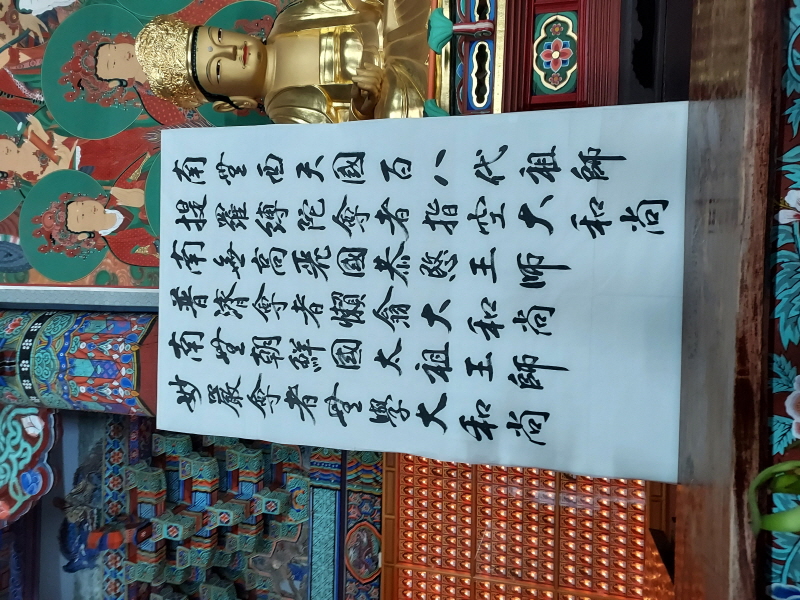 南無西天國百八代祖師
提羅縛陀尊者指空大和尚
南無高麗國恭愍王師
普濟尊者懶翁大和尚
南無朝鮮國太祖王師
妙嚴尊者無學大和尚